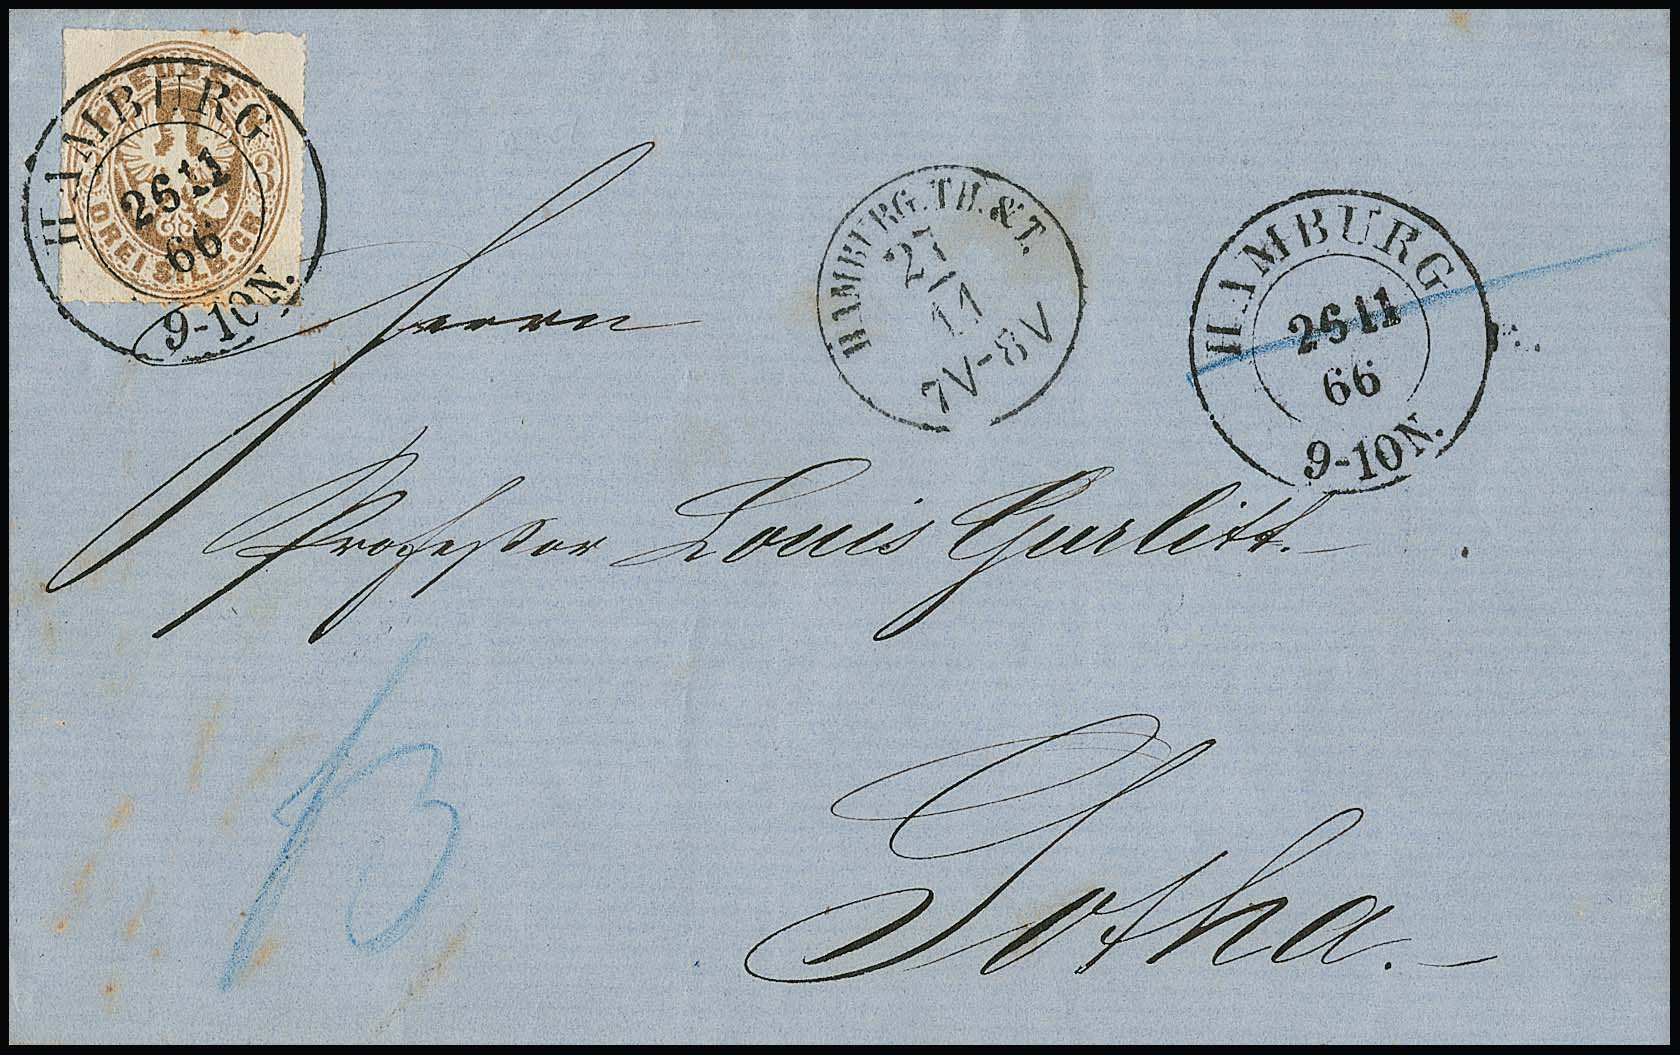 PREUSSEN
3
DREI SILB. GR.
HAMBURG
26 11
66
9-10 N.
HAMBURG. TH. & T.
27
11
7V-8V
HAMBURG
26 11
66
9-10 N.
Herrn
Professor Louis Gurlitt.
Gotha.